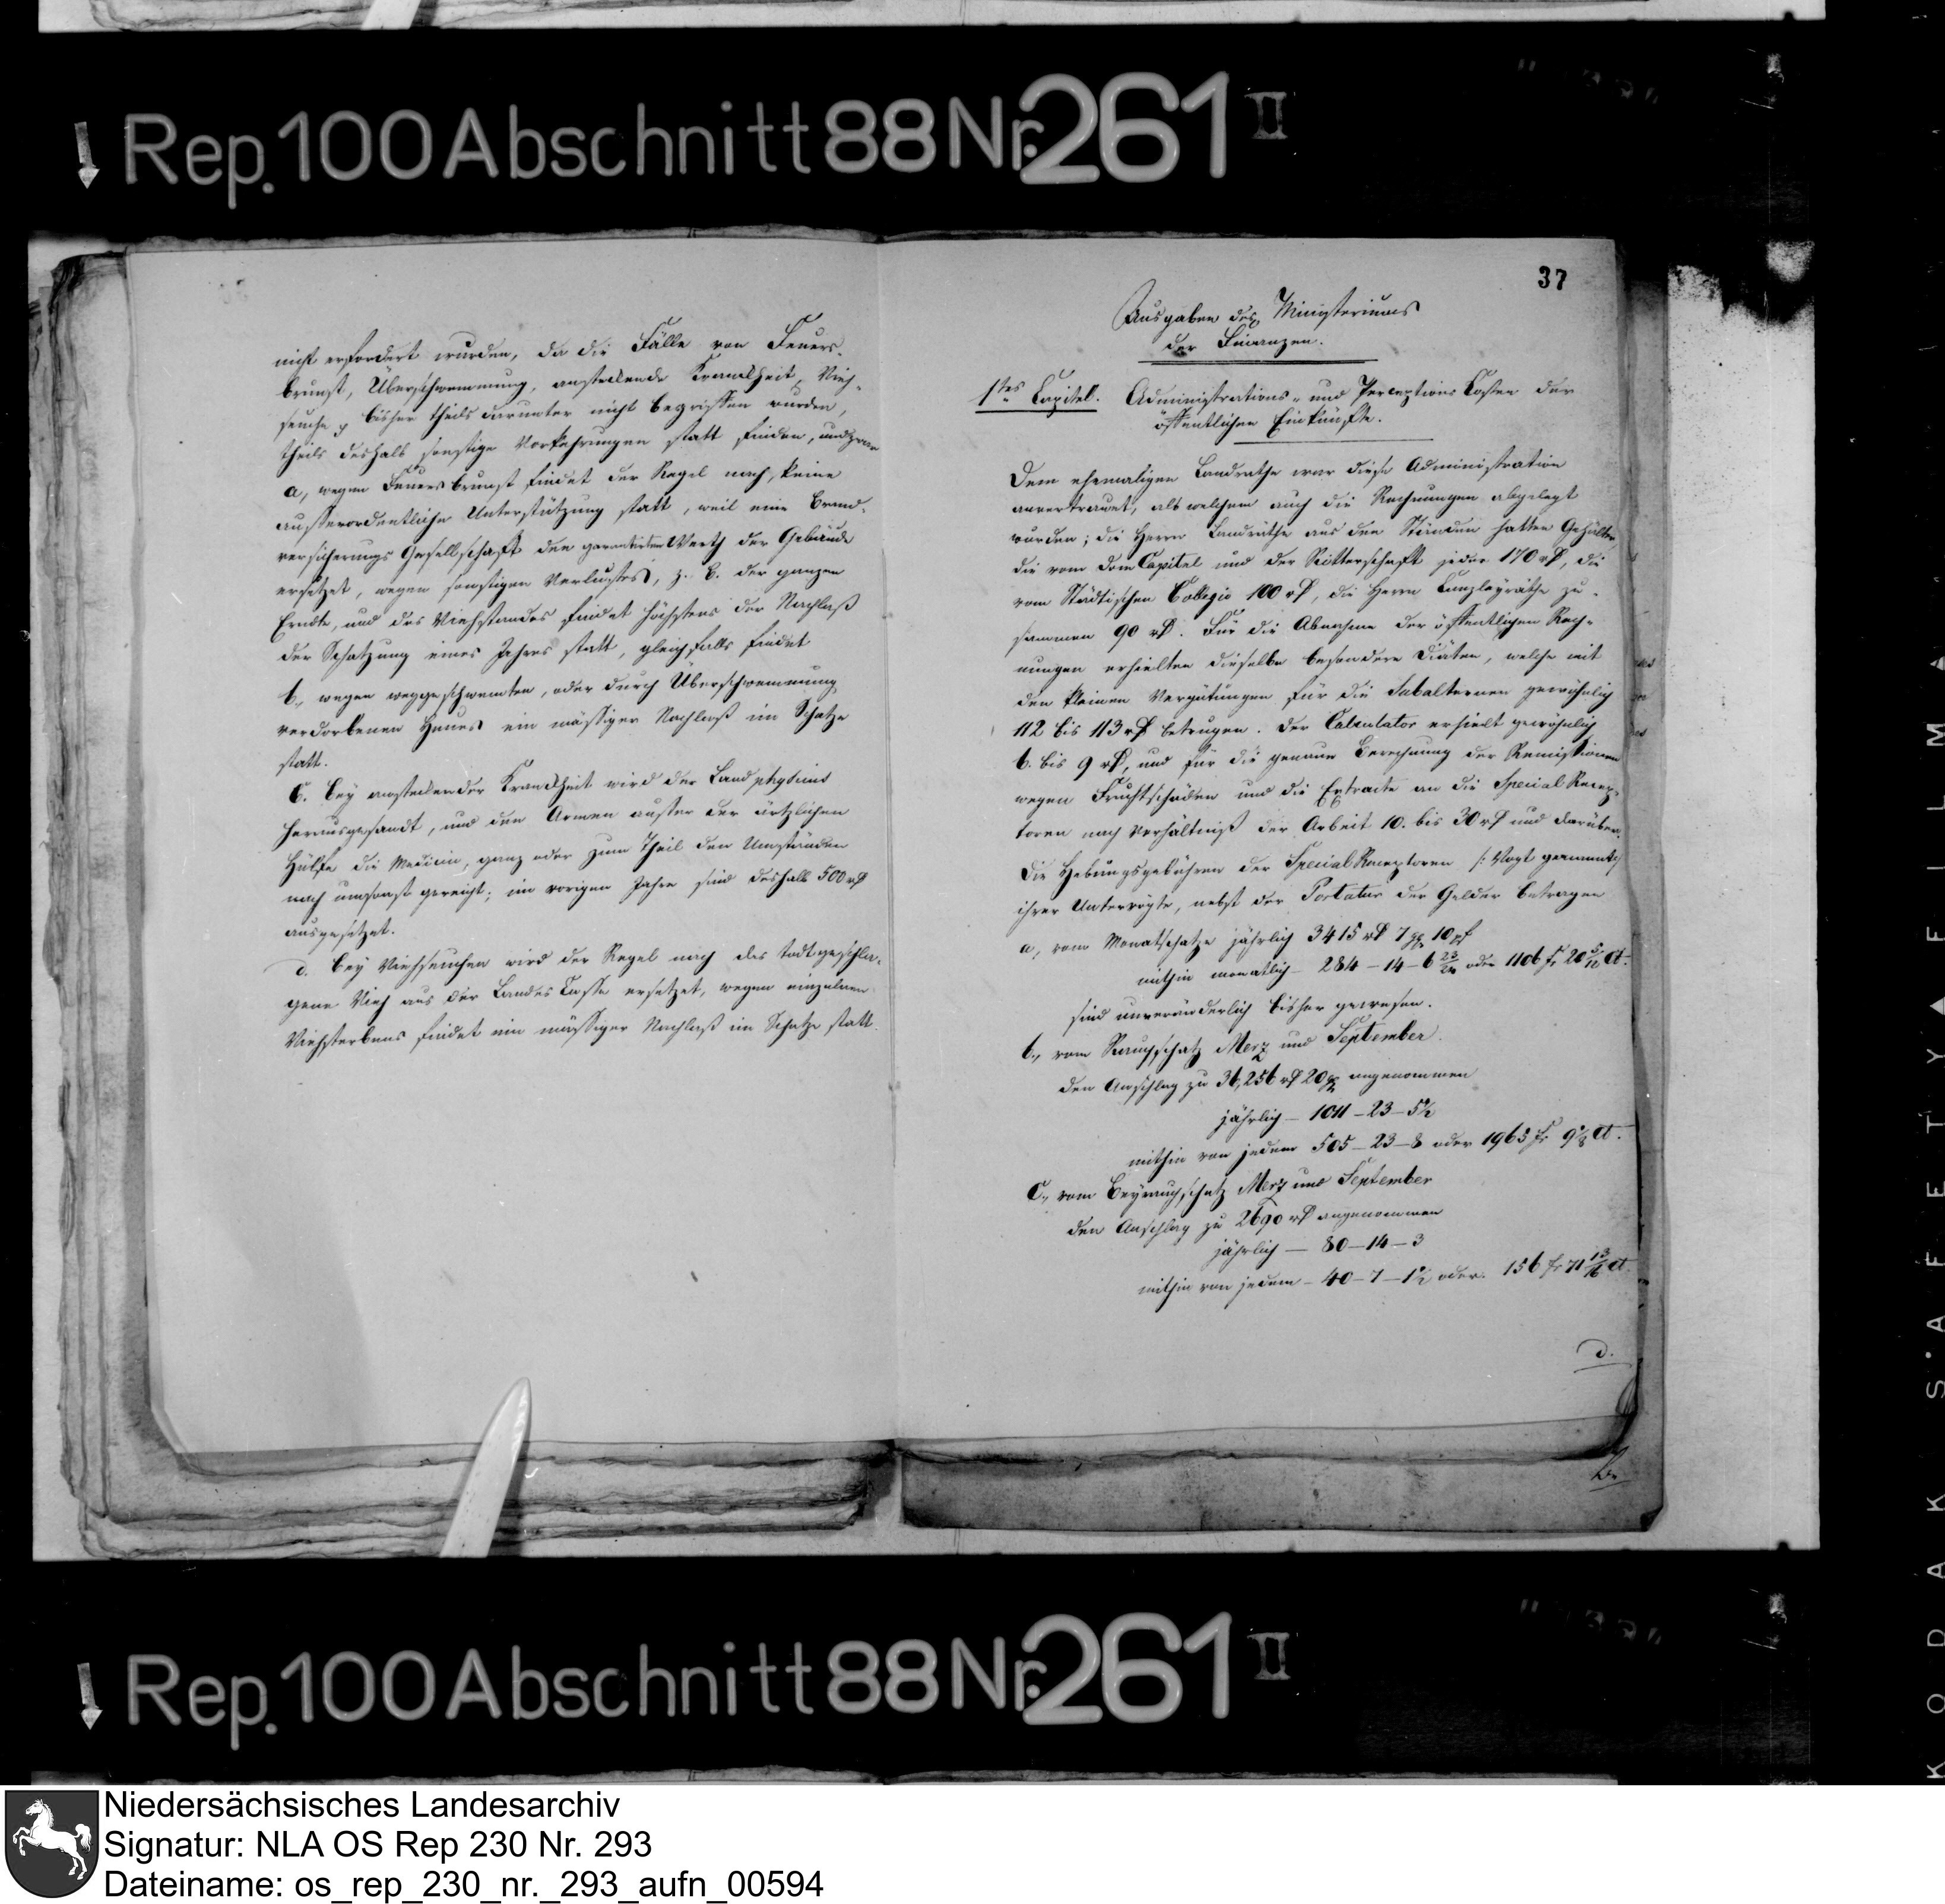 Rep. 100 Abschnitt 88 Nr. 261 II
nicht erfordert wurden, da die Fälle von Feuers-
brunst, Überschwemmung, ansteckende Krankheit, Vieh-
seuche p bisher theils darunter nicht begriffen wurden,
theils deshalb sonstige Vorkehrungen statt finden, und zwar
a, wegen Feuersbrunst findet der Regel nach, keine
ausserordentliche Unterstützung statt, weil eine Brand-
versicherungs Gesellschaft den garantirten Werth der Gebäude
ersetzet, wegen sonstigen Verlustes, z. B. der ganzen
Erndte, und des Viehstandes findet höchstens der Nachlaß
der Schatzung eines Jahres statt, gleichfalls findet
b., wegen weggeschwemten, oder durch Überschwemmung
verdorbenen Heues ein mässiger Nachlaß im Schatze
statt.
C. bey ansteckender Krankheit wird der Landphysicus
herausgesandt, und den Armen ausser der ärtzlichen
Hülfe die Medicin, ganz oder zum Theil den Umständen
nach umsonst gereicht; im vorigen Jahre sind deshalb 500 rthl
ausgesetzet.
d. bey Viehseuchen wird der Regel nach das todtgeschla-
gene Vieh aus der Landes Casse ersetzet, wegen einzelnen
Viehsterbens findet ein mässiger Nachlaß im Schatze statt.
37
Ausgaben des Ministeriums
der Finanzen.
1tes Capitel. Administrations- und Perceptions Kosten der
öffentlichen Einkünfte.
Dem ehemaligen Landrathe war diese Administration
anvertrauet, als welchem auch die Rechnungen abgelegt
wurden; die Herrn Landräthe aus den Ständen hatten Gehälter,
die vom Dom Capitel und der Ritterschaft jeder 170 rthl, die
vom Städtischen Collegio 100 rthl, die Herrn Canzleyräthe zu-
sammen 90 rthl. Für die Abnahme der öffentlichen Rech-
nungen erhielten dieselbe besondere Diäten, welche mit
den kleinen Vergütungen für die Subalternen gewöhnlich
112 bis 113 rthl betrugen. Der Calculator erhielt gewöhnlich
6. bis 9 rthl, und für die genaue Berechnung der Remissionen
wegen Fruchtschäden und die Extracte an die Special Recep-
toren nach Verhältniß der Arbeit 10. bis 30 rthl und darüber.
Die Hebungsgebühren der Special Receptoren /: Vogt genannt :/
ihrer Untervögte, nebst der Portatur der Gelder betragen
a, vom Monatschatze jährlich 3415 rthl 7 gg 10 pf
mithin monatlich – 284 – 14 – 6 23/24 oder 1106 fr 20 5/12 Ct.
sind unveränderlich bisher gewesen.
b., vom Rauchschatz Merz und September.
den Anschlag zu 36,256 rthl 20 gg angenommen
jährlich – 1011 – 23 – 5 1/2
mithin von jedem 505 – 23 – 8 oder 1965 fr 9 1/8 Ct.
C., vom Beyrauchschatz Merz und September
den Anschlag zu 2690 rthl angenommen
jährlich – 80 – 14 – 3
mithin von jedem – 40 – 7 – 1 1/2 oder 156 fr 71 13/16 Ct.
d.
Rep. 100 Abschnitt 88 Nr. 261 II
KODAK S·AFETY▲FILM▲
Niedersächsisches Landesarchiv
Signatur: NLA OS Rep 230 Nr. 293
Dateiname: os_rep_230_nr._293_aufn_00594